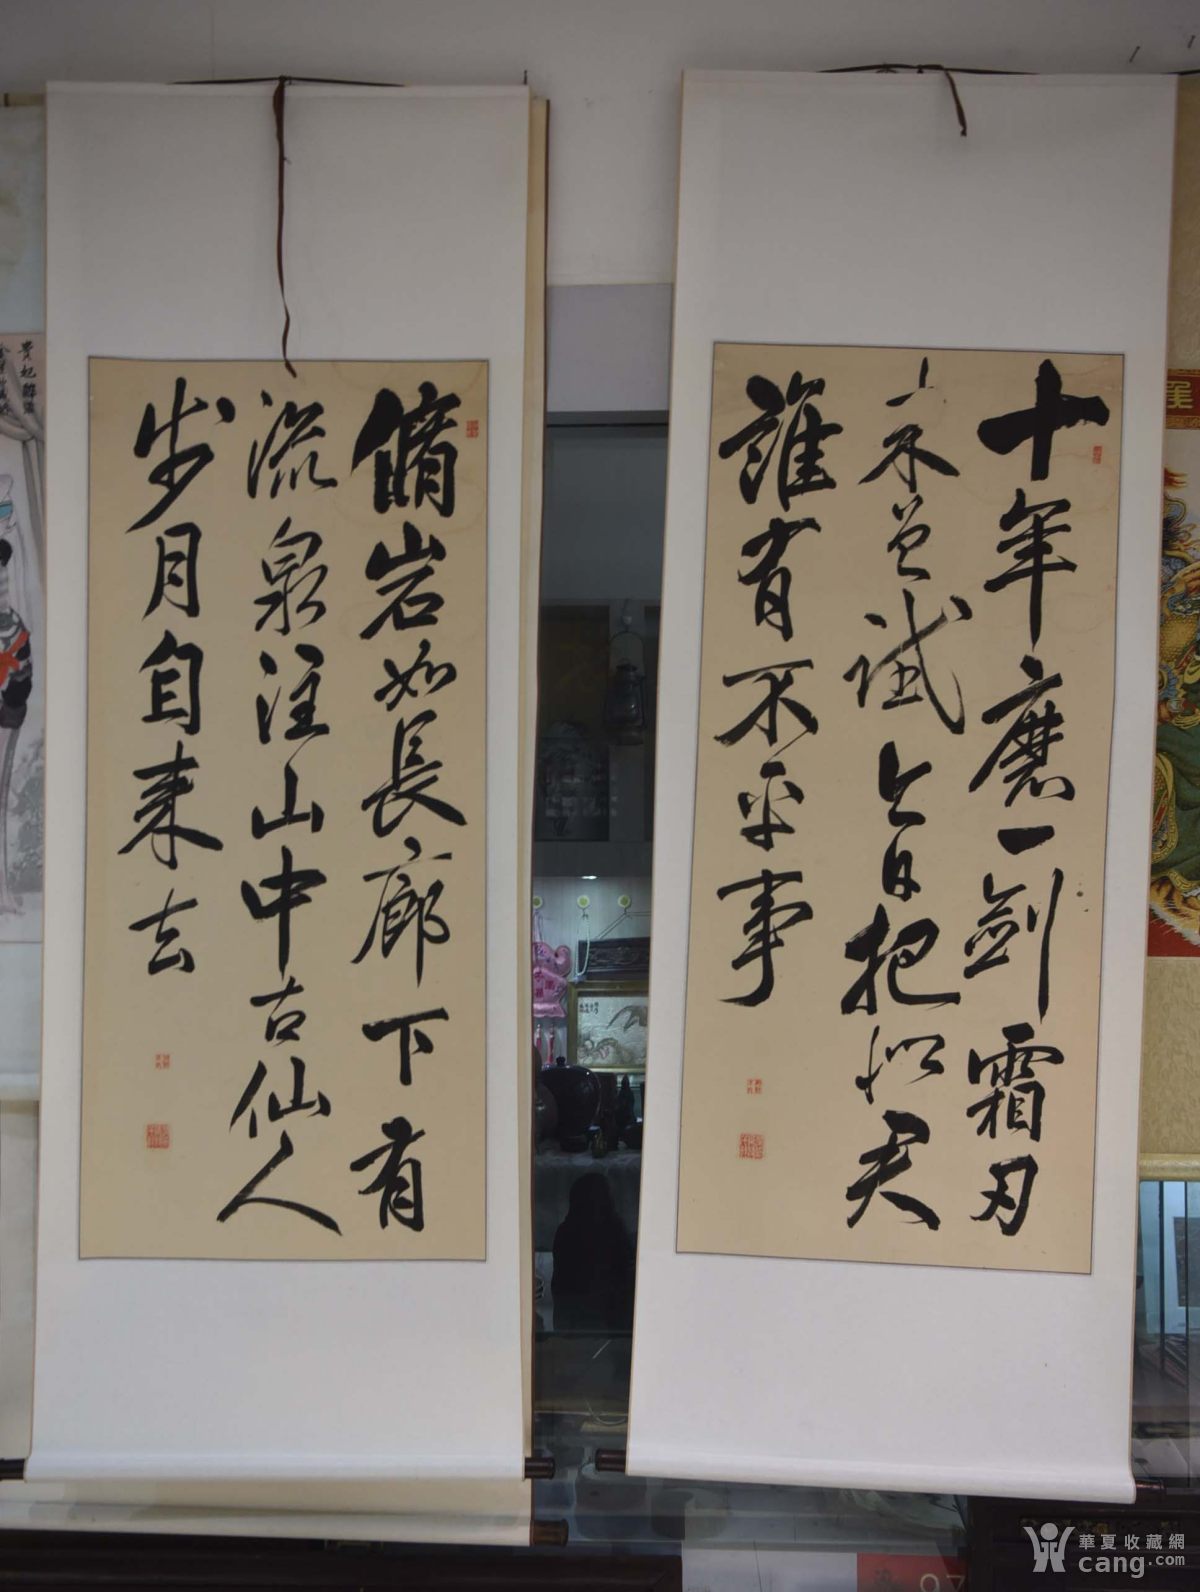 十年磨一劍霜刃
未曾試今日把似君
誰有不平事
脩岩如長廊下有
流泉注山中古仙人
步月自來去
華夏收藏網
cang.com